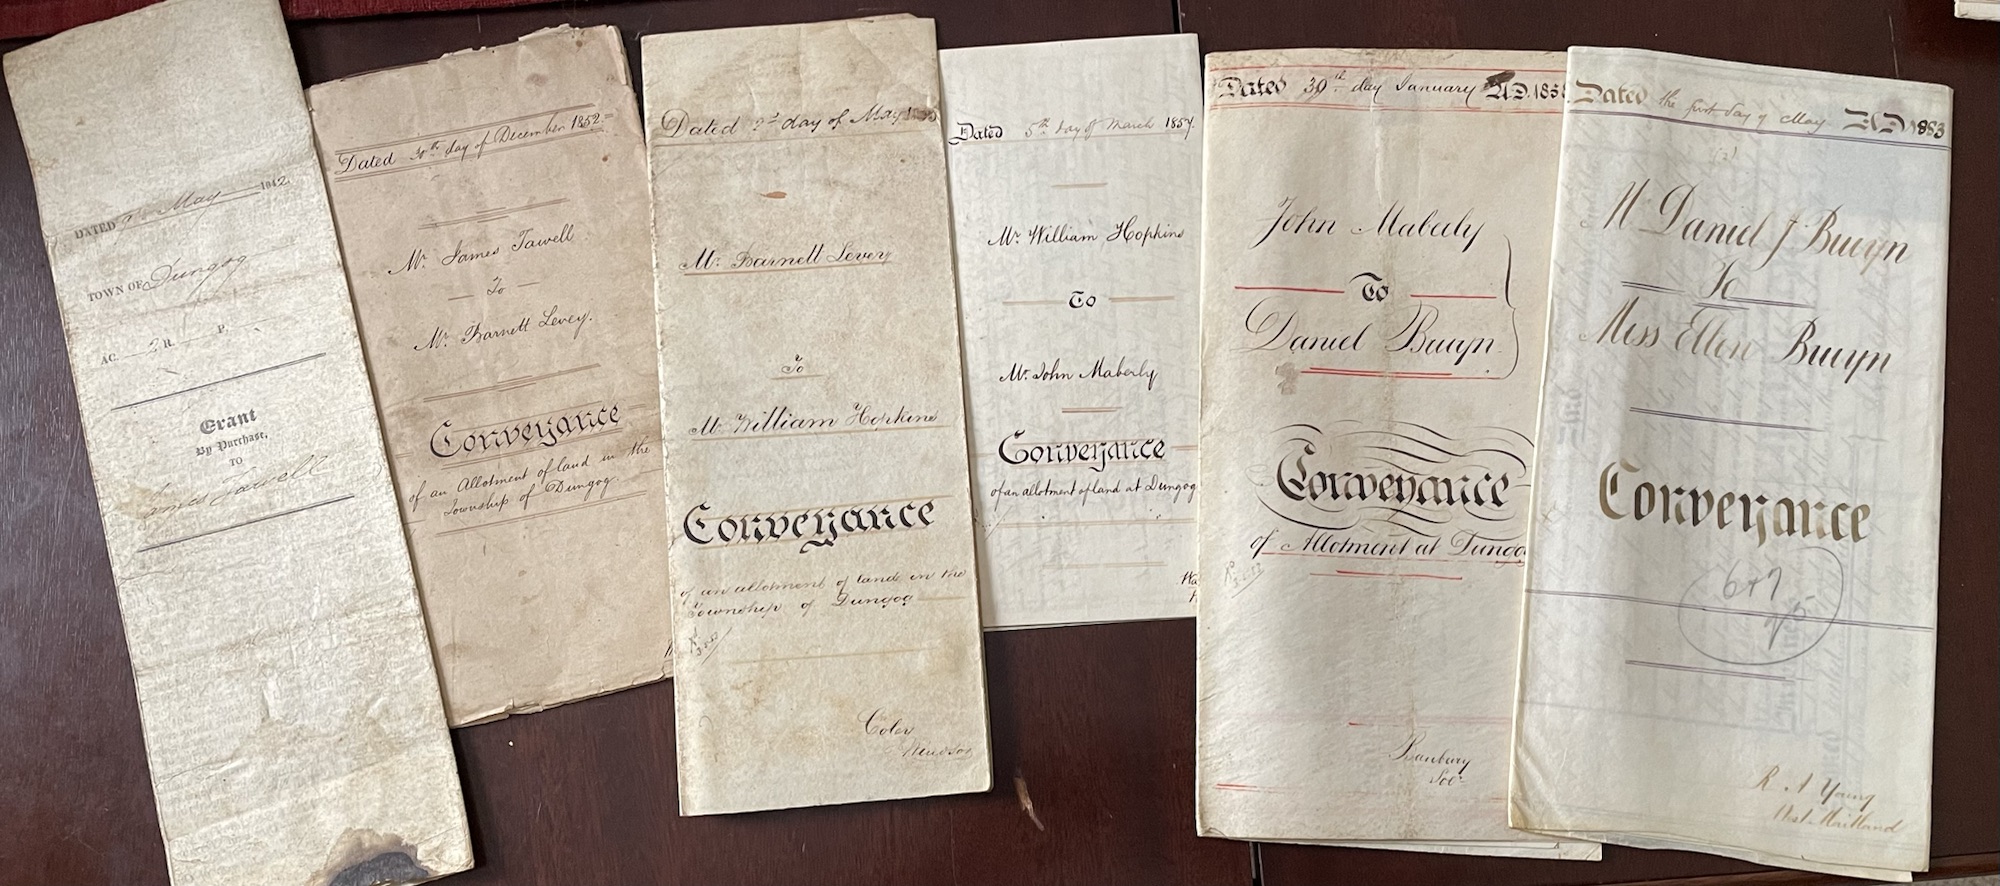 DATED 9th May 1842.
TOWN OF Dungog
AC. 2 R. P.
Grant
By Purchase,
TO
James Tawell
Dated 30th day of December 1852
Mr. James Tawell
To
Mr. Barnett Levey.
Conveyance
of an Allotment of land in the
Township of Dungog.
Dated 2d day of May
Mr. Barnett Levey
To
Mr. William Hopkins
Conveyance
of an allotment of land in the
Township of Dungog
Coley
Dated 5th day of March 1857.
Mr. William Hopkins
To
Mr. John Maberly
Conveyance
of an allotment of land at Dungog
Dated 30th day January A.D. 185
John Maberly
To
Daniel Bruyn.
Conveyance
of Allotment at Dungog
Banbury
Solr
Dated the first day of May A.D. 1883
(2)
Mr Daniel J Bruyn
To
Miss Ellen Bruyn
Conveyance
6+7
R A Young
West Maitland